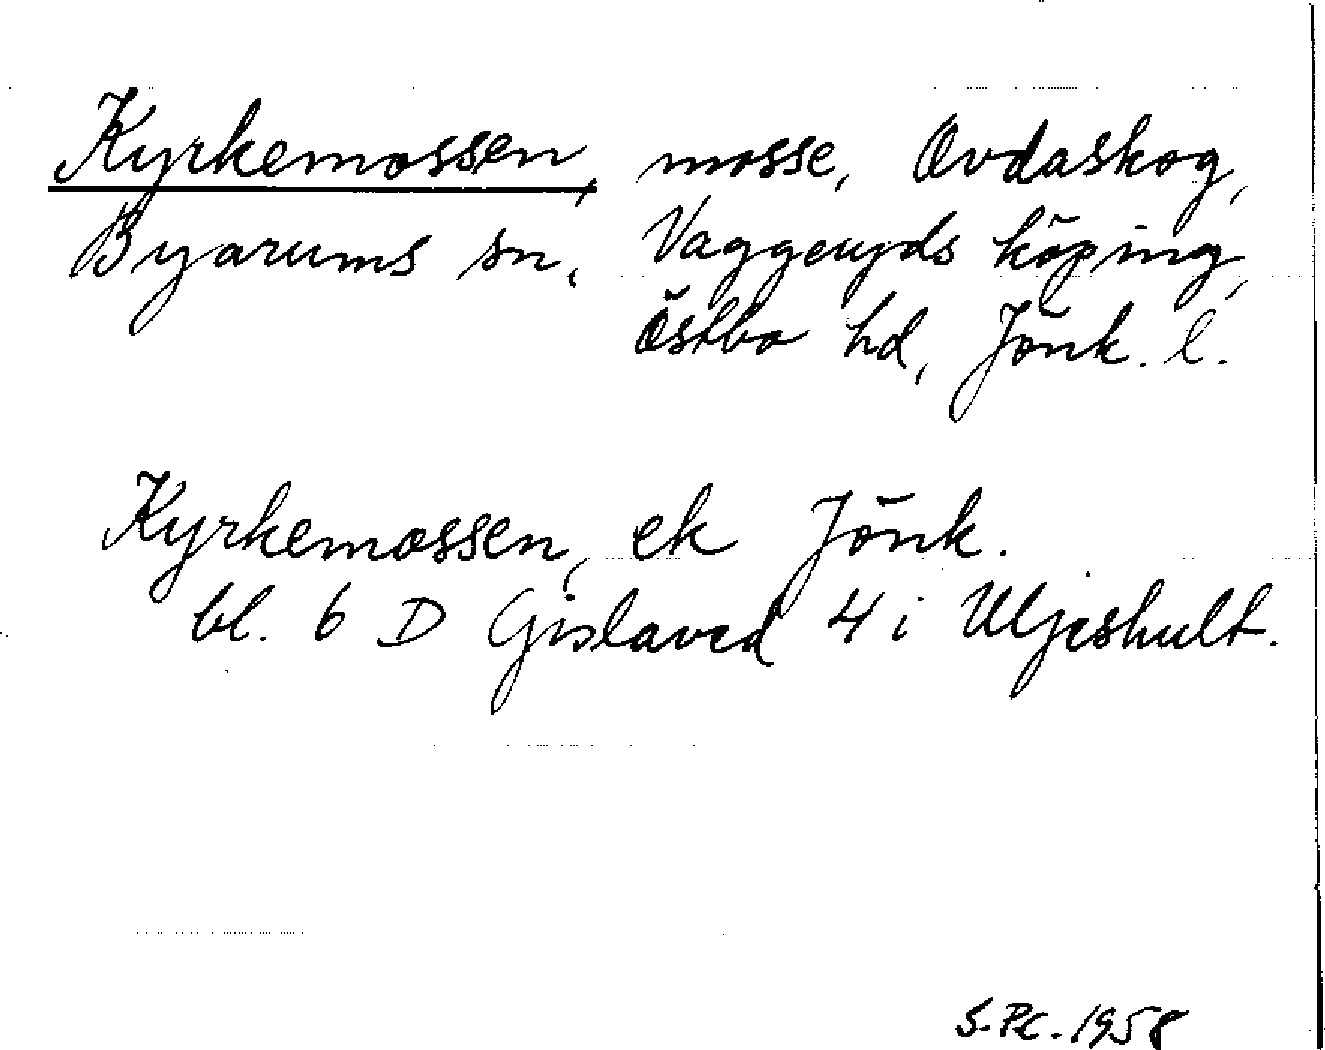 Kyrkemossen, mosse, Ovdaskog,
Byarums sn, Vaggeryds köping,
Östbo hd, Jönk. l.
Kyrkemossen, ek Jönk.
bl. 6 D Gislaved 4 i Uljeshult.
S. Pc. 1958